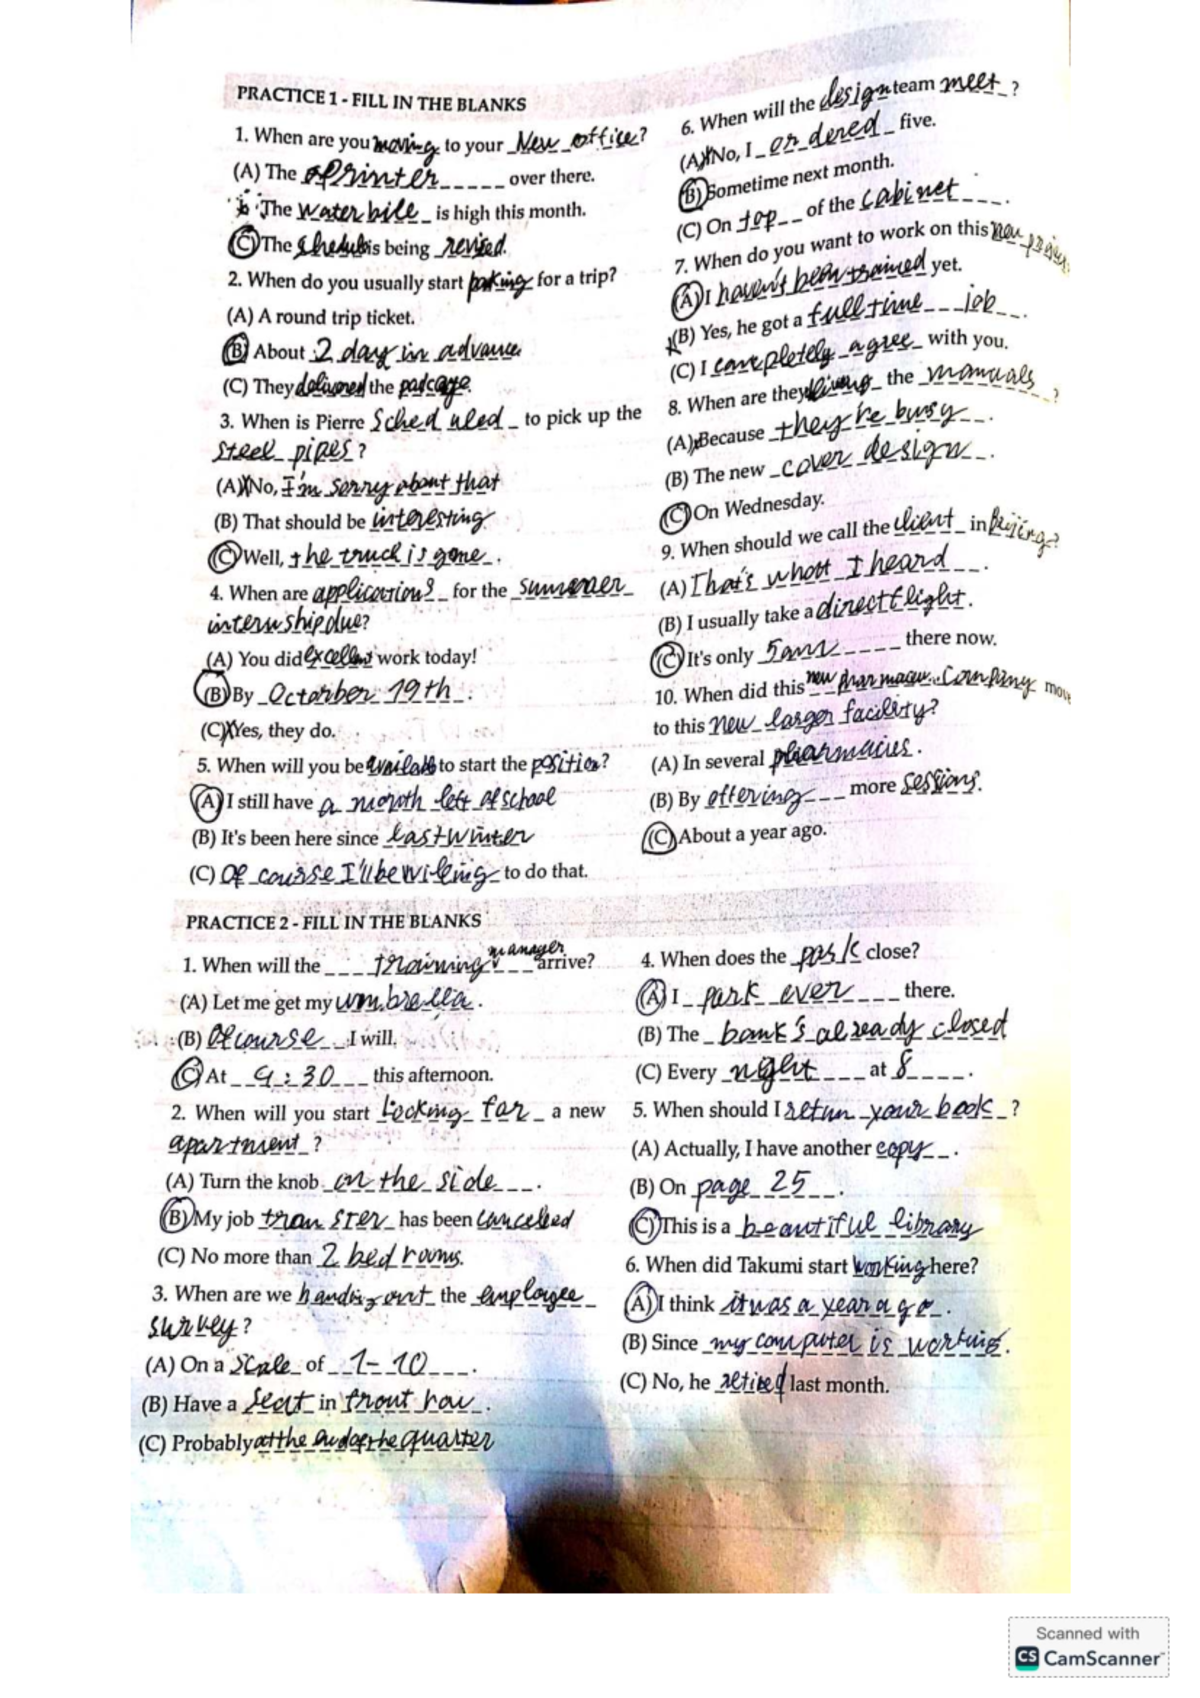 PRACTICE 1 - FILL IN THE BLANKS
1. When are you moving to your New office?
(A) The printer over there.
The water bile is high this month.
(C) The is being revised.
2. When do you usually start paking for a trip?
(A) A round trip ticket.
(B) About 2 day in advance
(C) They delivered the
3. When is Pierre Scheduled to pick up the
steel pipes?
(A) No, I'm sorry about that
(B) That should be interesting
(C) Well, the truck is gone.
4. When are applications for the summer
internship due?
(A) You did excellent work today!
(B) By Octorber 19th.
(C) Yes, they do.
5. When will you be to start the position?
(A) I still have a month left of school
(B) It's been here since last winter
(C) Of course I'll be wiling to do that.
6. When will the design team meet?
(A) No, I ordered five.
(B) Sometime next month.
(C) On top of the cabinet.
7. When do you want to work on this new
(A) I haven't been trained yet.
(B) Yes, he got a full time job.
(C) I completely agree with you.
8. When are they the manuals?
(A) Because they're busy.
(B) The new cover design.
(C) On Wednesday.
9. When should we call the client in Beijing?
(A) That's what I heard.
(B) I usually take a direct flight.
(C) It's only 5am there now.
10. When did this new company
to this new larger facility?
(A) In several pharmacies.
(B) By offering more sessions.
(C) About a year ago.
PRACTICE 2 - FILL IN THE BLANKS
1. When will the training manager arrive?
(A) Let me get my umbrella.
(B) Of course I will.
(C) At 4:30 this afternoon.
2. When will you start looking for a new
apartment?
(A) Turn the knob on the side.
(B) My job has been canceled
(C) No more than 2 bedrooms.
3. When are we handing out the employee
survey?
(A) On a scale of 1-10.
(B) Have a seat in frout row.
(C) Probably at the end of the quarter
4. When does the park close?
(A) I park over there.
(B) The bank's already closed
(C) Every night at 8.
5. When should I retun your book?
(A) Actually, I have another copy.
(B) On page 25.
(C) This is a beautiful library
6. When did Takumi start working here?
(A) I think it was a year ago.
(B) Since my computer is working.
(C) No, he retired last month.
Scanned with
CS CamScanner